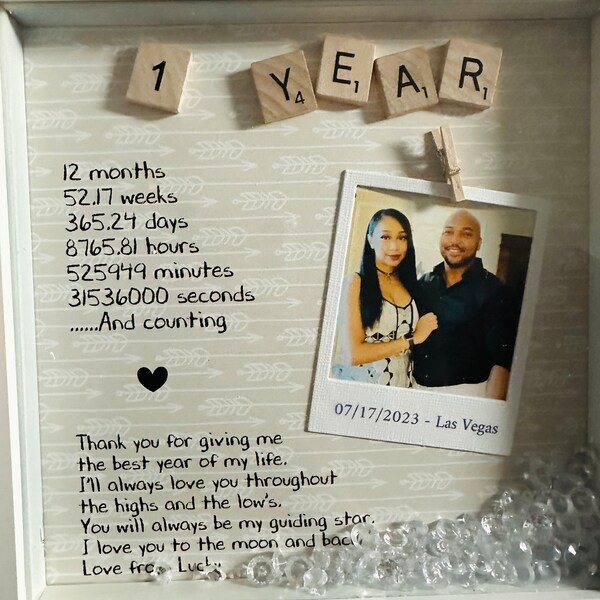 1 YEAR
12 months
52.17 weeks
365.24 days
8765.81 hours
525949 minutes
31536000 seconds
......And counting
07/17/2023 - Las Vegas
Thank you for giving me
the best year of my life.
I'll always love you throughout
the highs and the low's.
You will always be my guiding star.
I love you to the moon and back
Love from Lucky